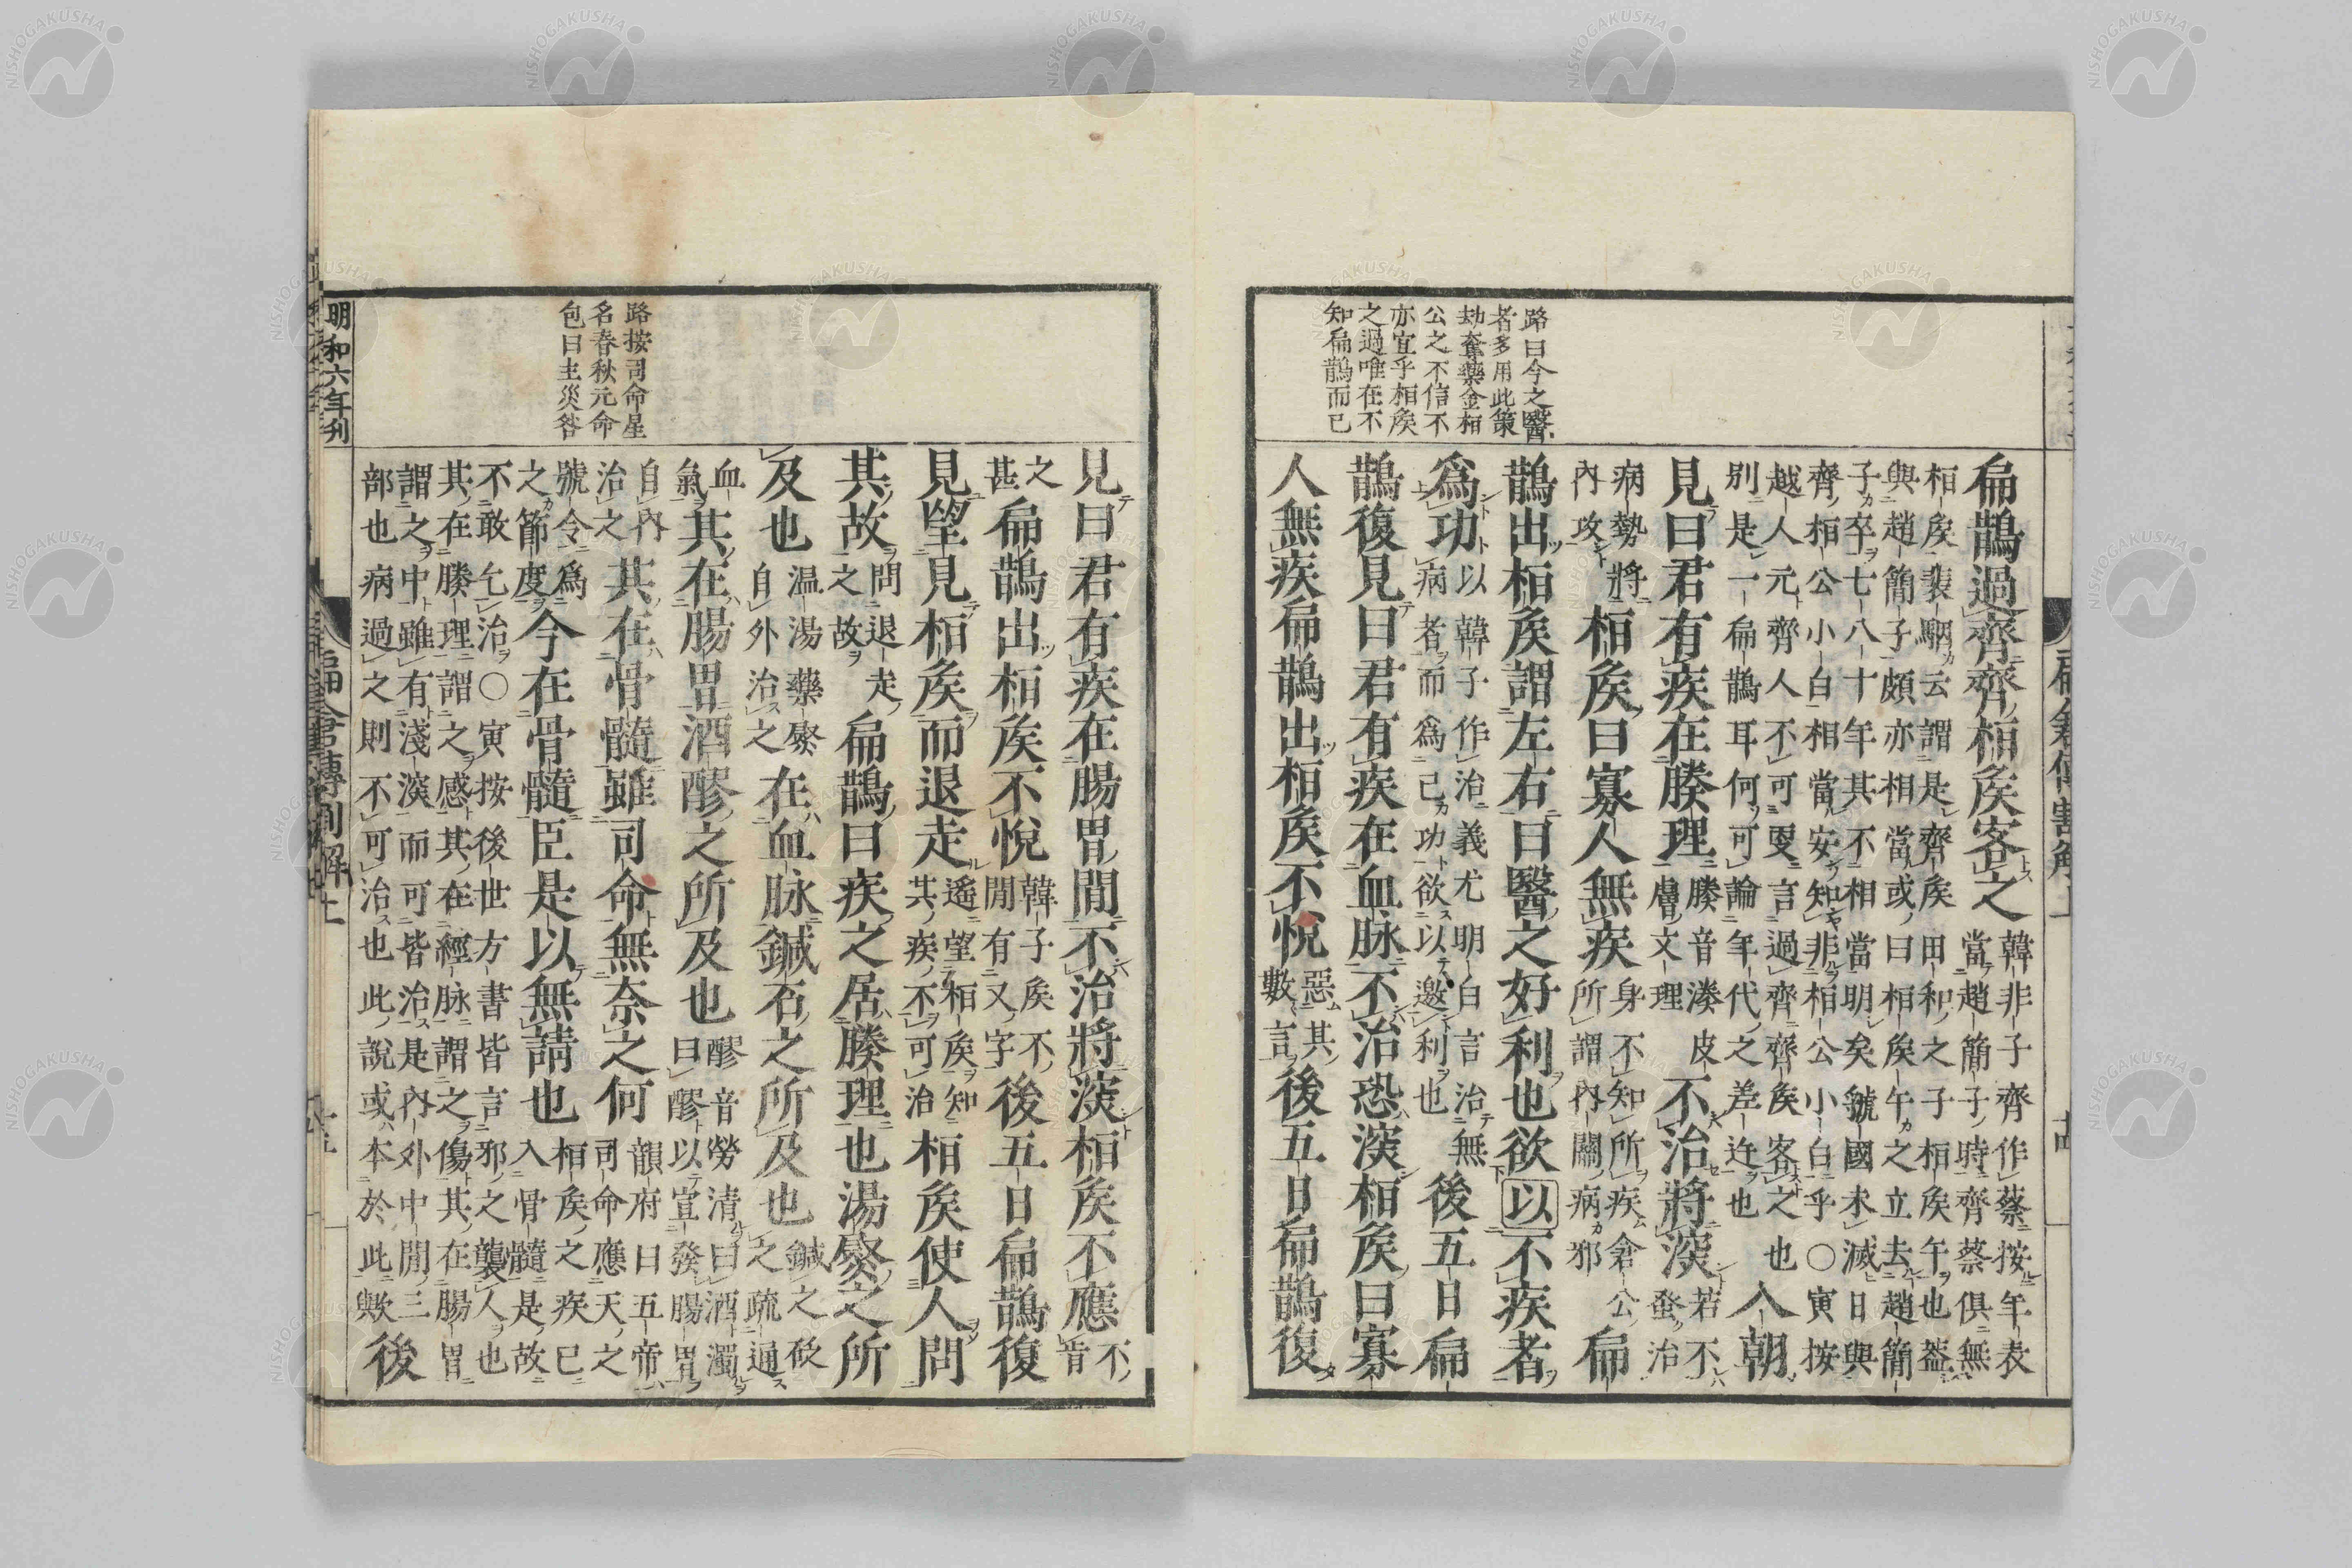 路曰今之醫
者多用此策
劫奪藥金桓
公之不信不
亦宜乎桓矦
之過唯在不
知扁鵲而已
扁鵲過齊齊桓矦客之
韓非子齊作蔡按年表
當趙簡子時齊蔡俱無
桓矦裴駰云謂是齊矦田和之子桓矦午也蓋
與趙簡子頗亦相當或曰桓矦午之立去趙簡
子卒七八十年其不相當明矣虢國未滅日與
齊桓公小白相當安知非桓公小白乎〇寅按
越人元齊人不可更言過齊齊矦客之也
別是一扁鵲耳何可論年代之差迕也
入朝
見曰君有疾在腠理
腠音湊皮
膚文理
不治將深
若不
蚤治
病勢將
內攻
桓矦曰寡人無疾
身不知所疾倉公
所謂內關病邪
扁
鵲出桓矦謂左右曰醫之好利也欲以不疾者
爲功
以韓子作治義尤明白言治無
病者而爲己功欲以邀利也
後五日扁
鵲復見曰君有疾在血脉不治恐深桓矦曰寡
人無疾扁鵲出桓矦不悅
惡其
數言
後五日扁鵲復
路按司命星
名春秋元命
包曰主災咎
見曰君有疾在腸胃間不治將深桓矦不應
不
肯
之
甚
扁鵲出桓矦不悅
韓子矦不
閒有又字
後五日扁鵲復
見望見桓矦而退走
遙望桓矦知
其疾不可治
桓矦使人問
其故
問退走
之故
扁鵲曰疾之居腠理也湯熨之所
及也
温湯藥熨
自外治之
在血脉鍼石之所及也
鍼之砭
之疏通
血
氣
其在腸胃酒醪之所及也
醪音勞清曰酒濁
曰醪以宣發腸胃
自內
治之
其在骨髓雖司命無奈之何
韻府曰五帝
司命應天之
號令爲
之節度
今在骨髓臣是以無請也
桓矦之疾已
入骨髓是故
不敢乞治〇寅按後世方書皆言邪之襲人也
其在腠理謂之感其在經脉謂之傷其在腸胃
謂之中雖有淺深而可皆治是內外中間三
部也病過之則不可治也此說或本於此歟
後
明和六年刋